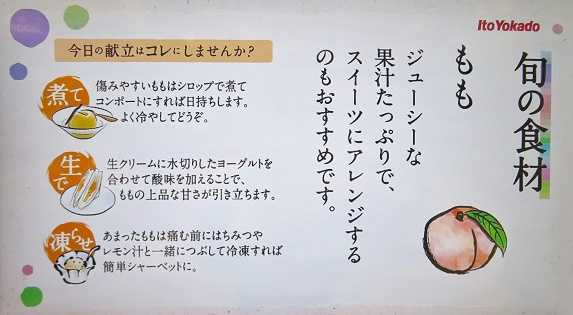 Ito Yokado
旬の食材
もも
ジューシーな
果汁たっぷりで、
スイーツにアレンジする
のもおすすめです。
今日の献立はコレにしませんか?
煮て
傷みやすいももはシロップで煮て
コンポートにすれば日持ちします。
よく冷やしてどうぞ。
生で
生クリームに水切りしたヨーグルトを
合わせて酸味を加えることで、
ももの上品な甘さが引き立ちます。
凍らせ
あまったももは痛む前にはちみつや
レモン汁と一緒につぶして冷凍すれば
簡単シャーベットに。